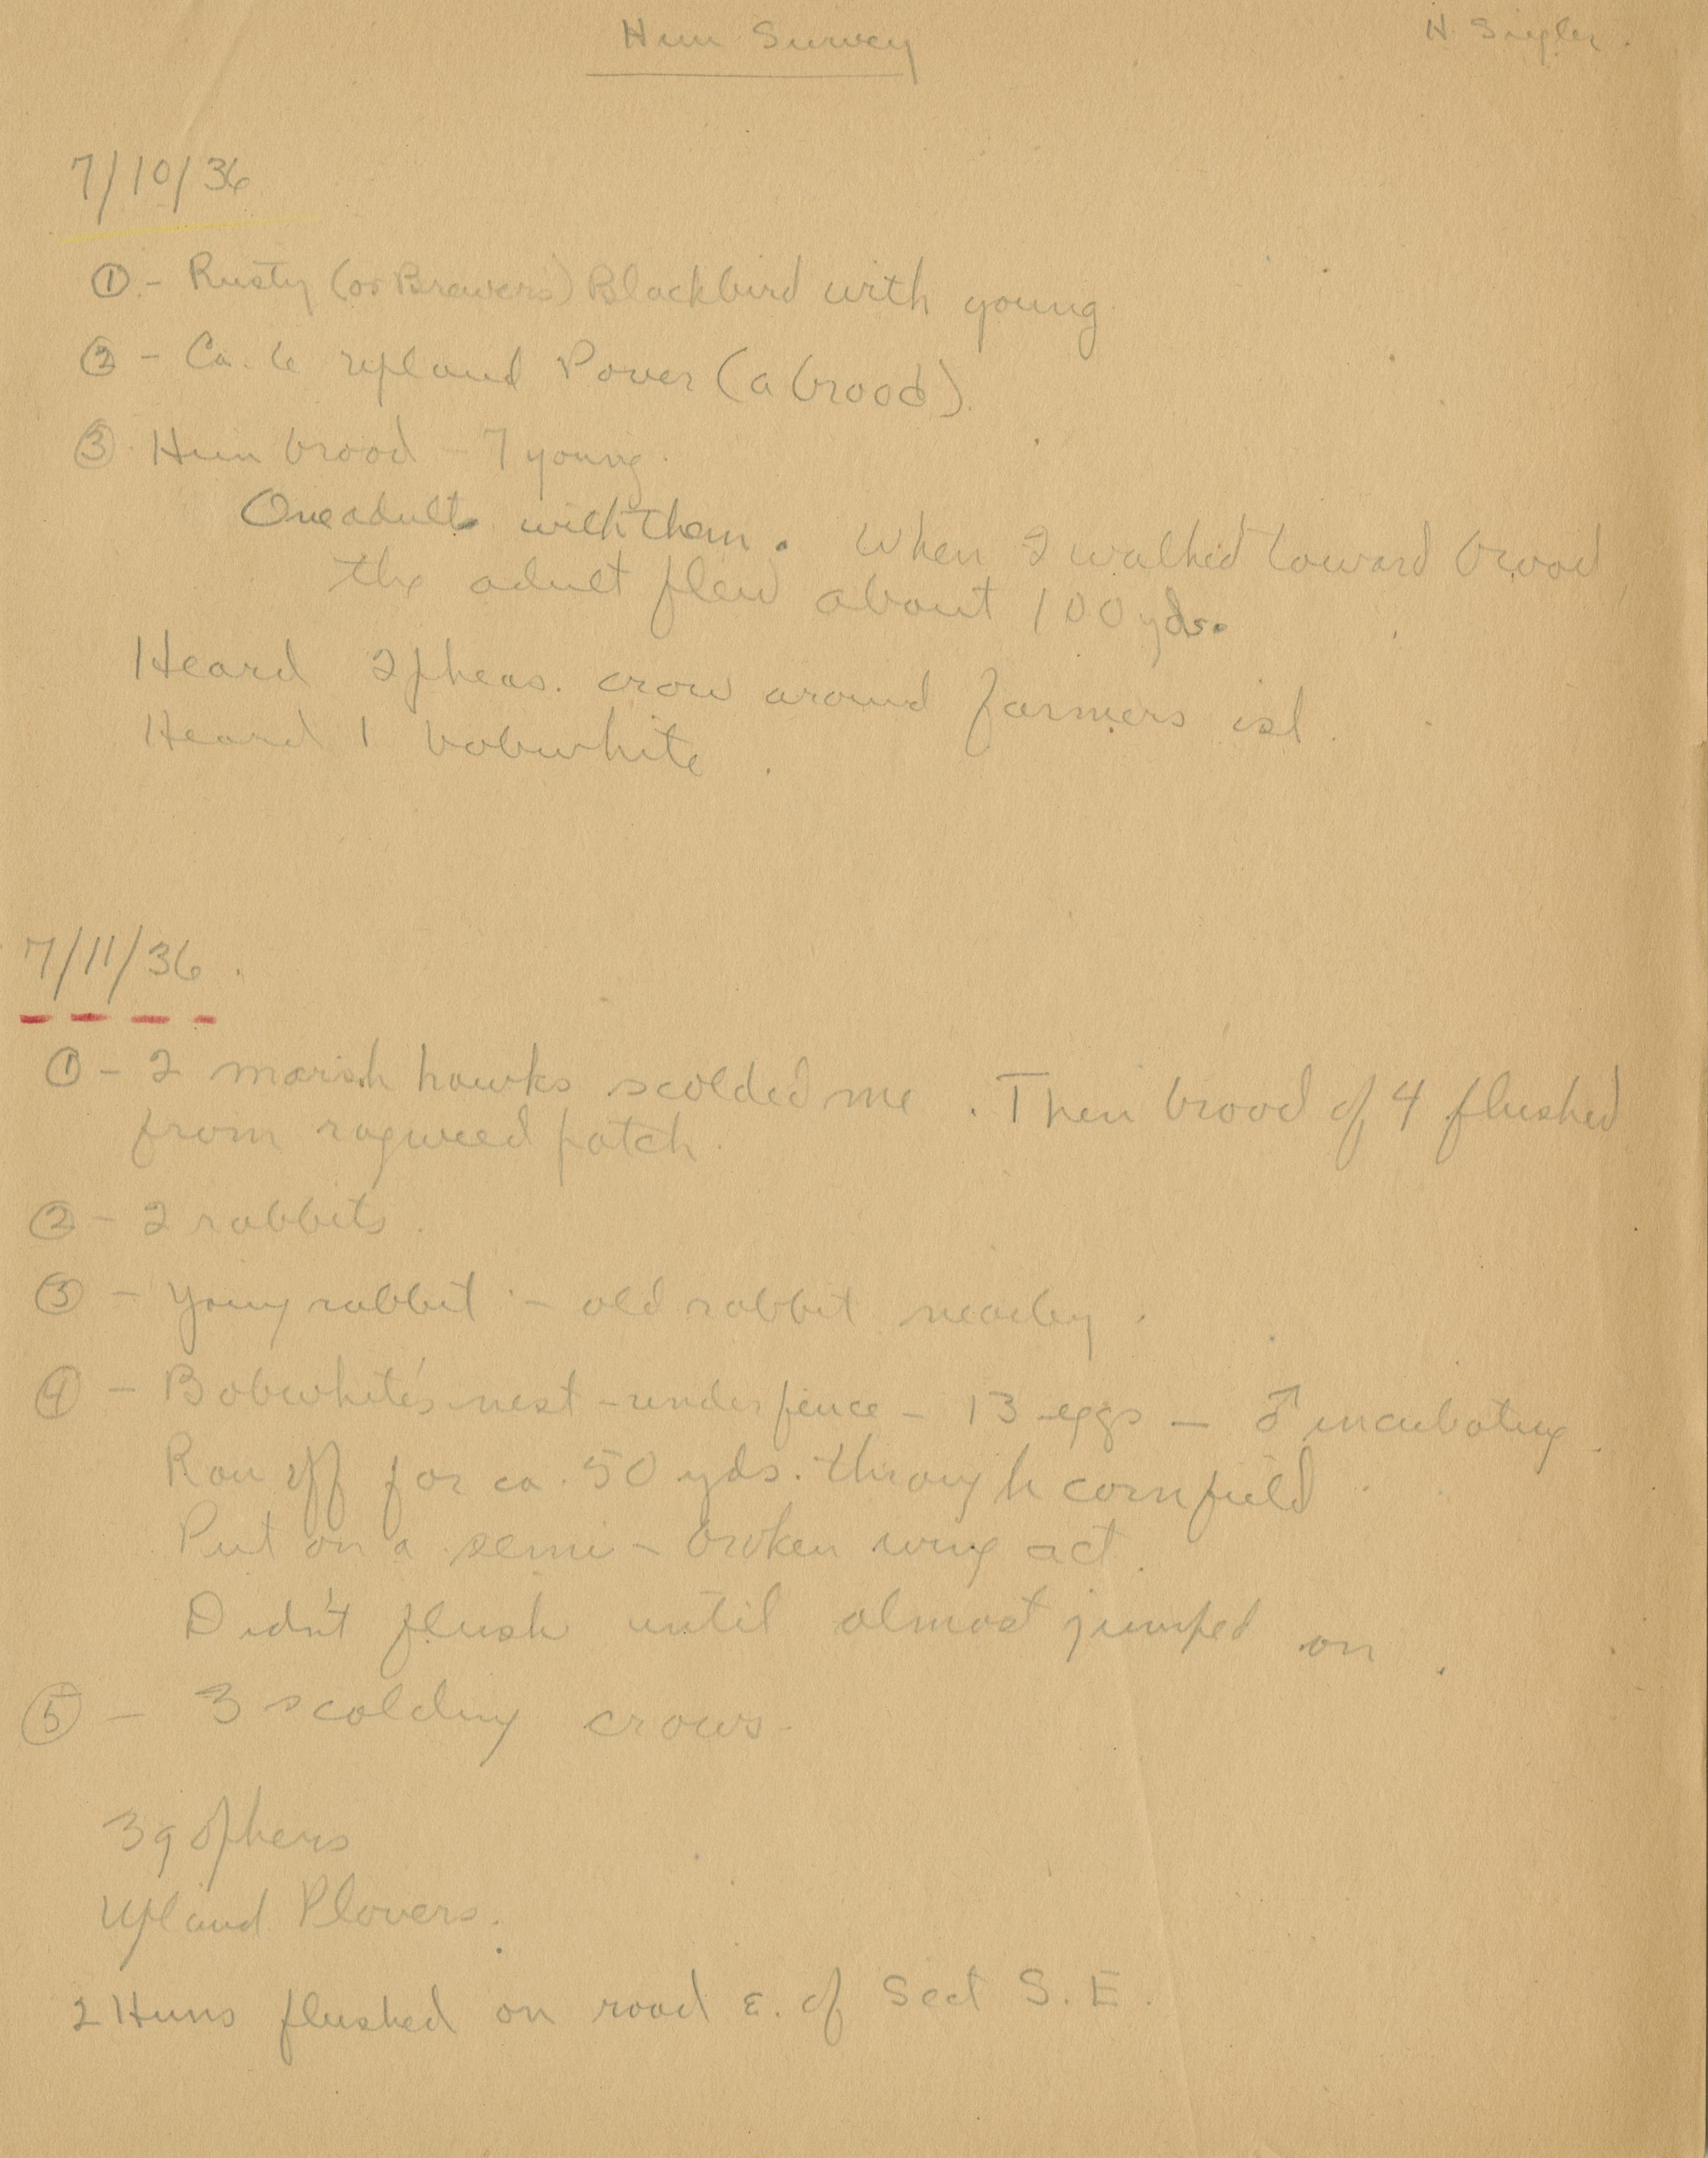 Hun Survey
H. Siegler.
7/10/36
① - Rusty (or Brewers) Blackbird with young
② - Ca. 6 upland Plover (a brood).
③ Hun brood - 7 young.
One adult with them. When I walked toward brood,
the adult flew about 100 yds.
Heard 2 pheas. crow around farmers isl.
Heard 1 bobwhite.
7/11/36.
① - 2 marsh hawks scolded me. Then brood of 4 flushed
from ragweed patch.
② - 2 rabbits.
③ - Young rabbit - old rabbit nearby.
④ - Bobwhite's nest - under fence - 13 eggs - ♂ incubating.
Ran off for ca. 50 yds. through cornfield.
Put on a semi-broken wing act.
Didn't flush until almost jumped on.
⑤ - 3 scolding crows.
3 gophers
Upland Plovers.
2 Huns flushed on road E. of Sect S.E.